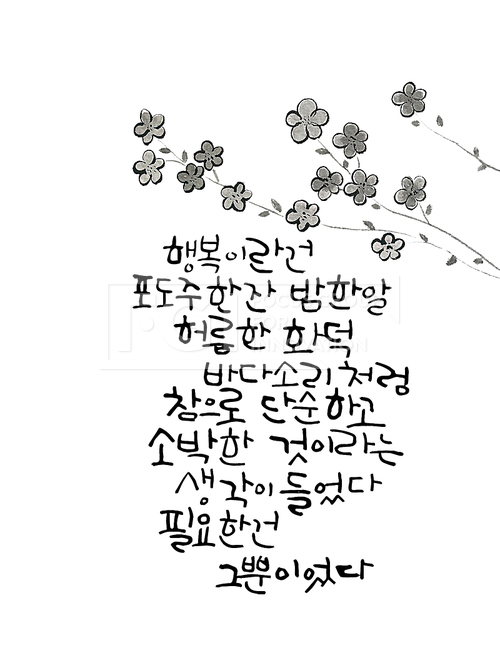 행복이란건
포도주한잔 밤한알
허름한 화덕
바다소리처럼
참으로 단순하고
소박한 것이라는
생각이들었다
필요한건
그뿐이었다